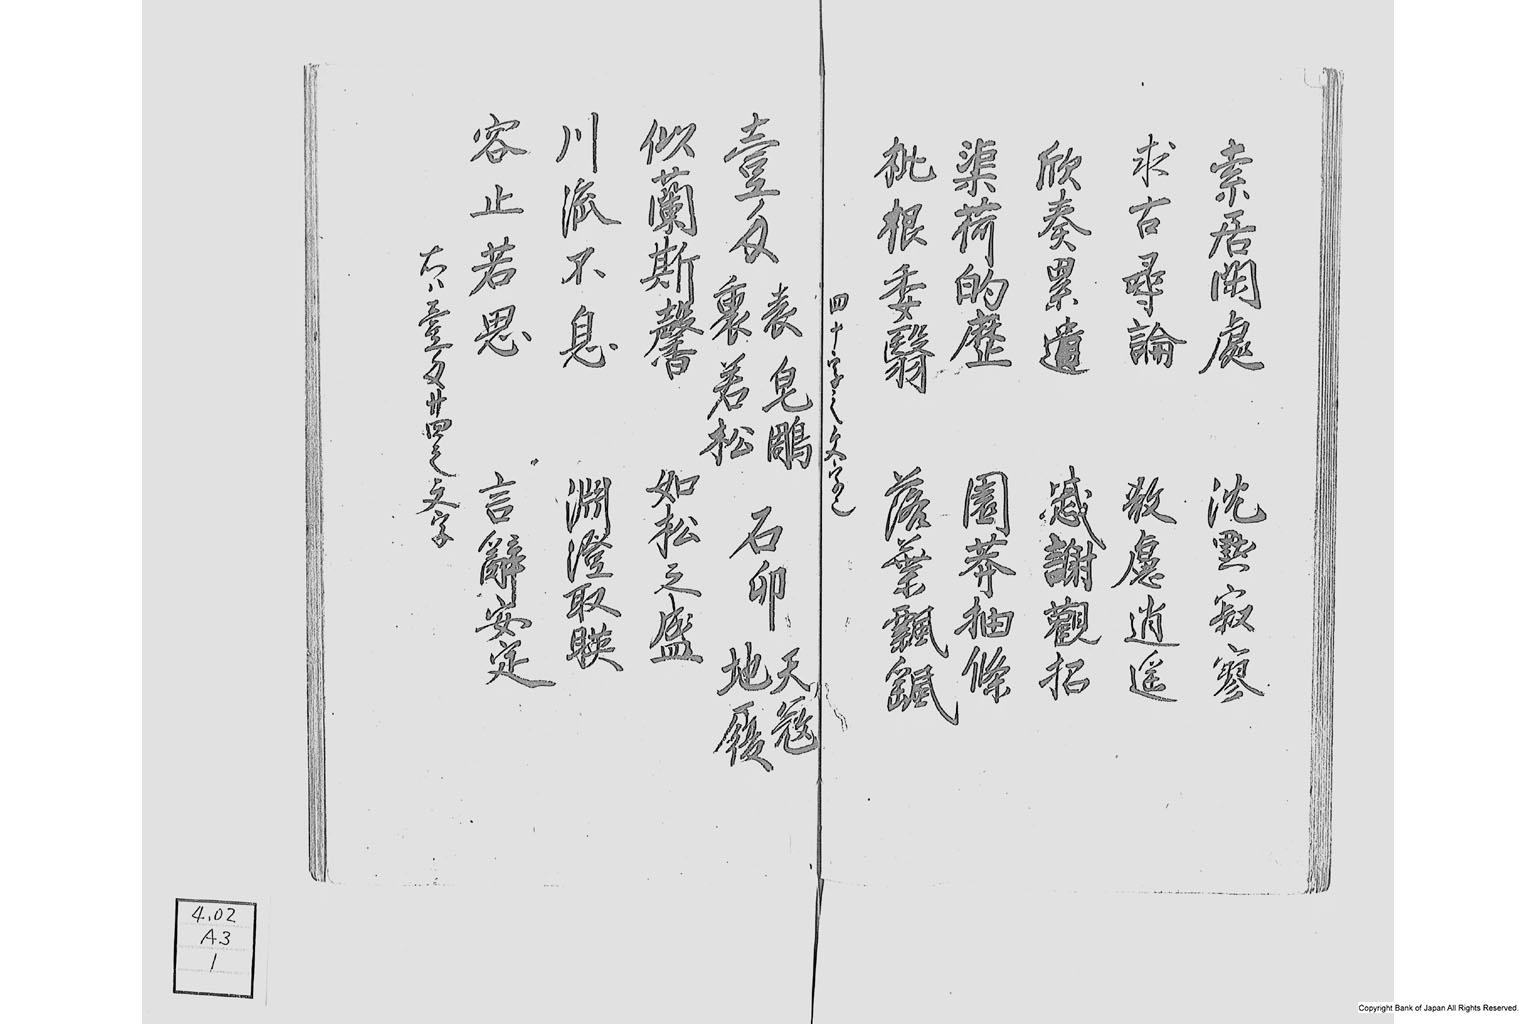 索居閑處 沈默寂寥
求古尋論 散慮逍遥
欣奏累遣 慼謝觀招
渠荷的歴 園莽抽條
枇根委翳 落葉飄颻
四十字之文字之
壹匁 表 皂鵰 石卯 天冦
裏 若松 地履
似蘭斯馨 如松之盛
川流不息 淵澄取暎
容止若思 言辭安定
右八壹匁廿四之文字
4.02
A3
1
Copyright Bank of Japan All Rights Reserved.